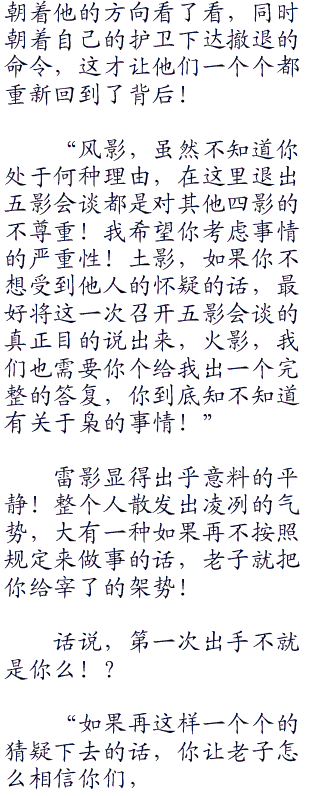 朝着他的方向看了看，同时
朝着自己的护卫下达撤退的
命令，这才让他们一个个都
重新回到了背后！
“风影，虽然不知道你
处于何种理由，在这里退出
五影会谈都是对其他四影的
不尊重！我希望你考虑事情
的严重性！土影，如果你不
想受到他人的怀疑的话，最
好将这一次召开五影会谈的
真正目的说出来，火影，我
们也需要你个给我出一个完
整的答复，你到底知不知道
有关于枭的事情！”
雷影显得出乎意料的平
静！整个人散发出凌冽的气
势，大有一种如果再不按照
规定来做事的话，老子就把
你给宰了的架势！
话说，第一次出手不就
是你么！？
“如果再这样一个个的
猜疑下去的话，你让老子怎
么相信你们，